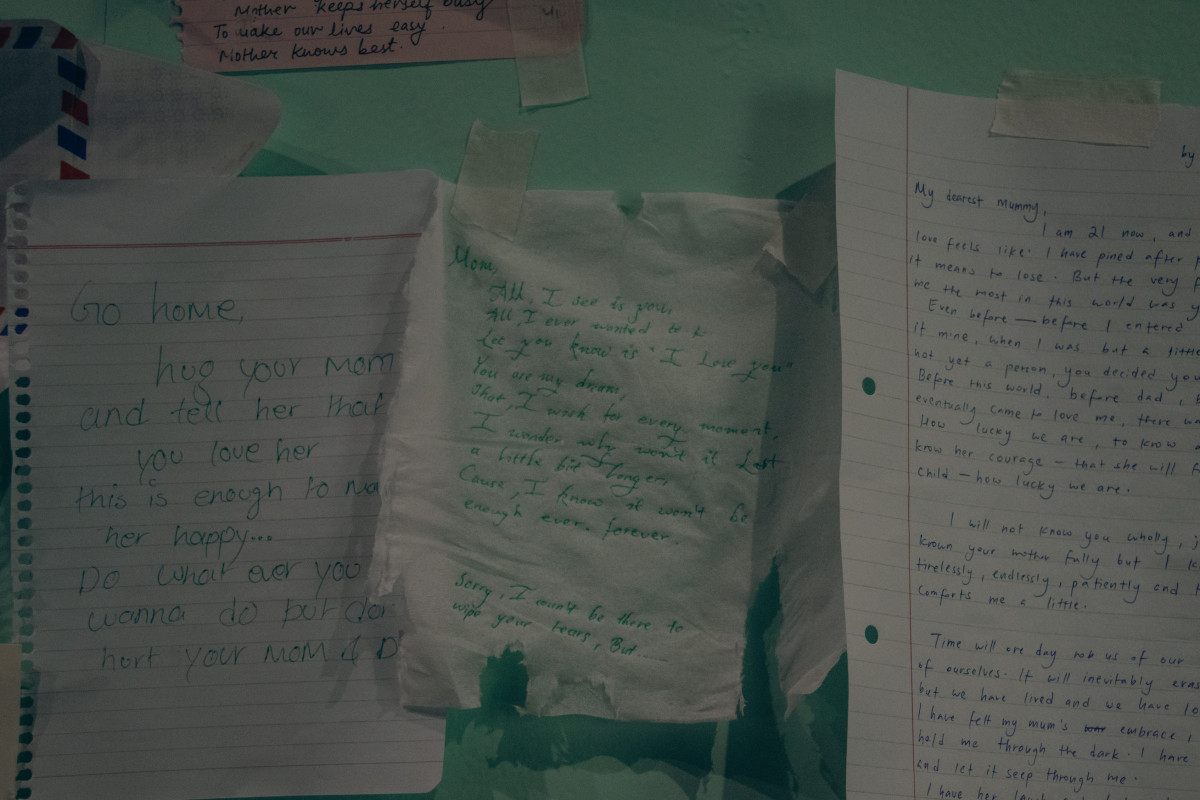 Mother keeps herself busy
To make our lives easy.
Mother knows best.
Go home,
hug your mom
and tell her that
you love her
this is enough to
her happy...
Do what ever you
wanna do but
hurt your MOM &
Mom,
All, I see is you,
All, I ever wanted to
Let you know is "I Love you"
You are my dream,
that, I wish for every moment,
I wonder why won't it Last
a little bit longer,
Cause, I know it won't be
enough ever, forever.
Sorry, I couldn't be there to
wipe your tears, But
by
My dearest mummy,
I am 21 now, and
love feels like. I have pined after
it means to lose. But the very
me the most in this world was
Even before — before I entered
it mine, when I was but a little
not yet a person, you decided
Before this world, before dad,
eventually came to love me, there
How lucky we are, to know
know her courage — that she will
child — how lucky we are.
I will not know you wholly,
known your mother fully but I
tirelessly, endlessly, patiently and
comforts me a little.
Time will one day rob us of our
of ourselves. It will inevitably
but we have lived and we have
I have felt my mum's embrace
hold me through the dark. I have
and let it seep through me.
I have her